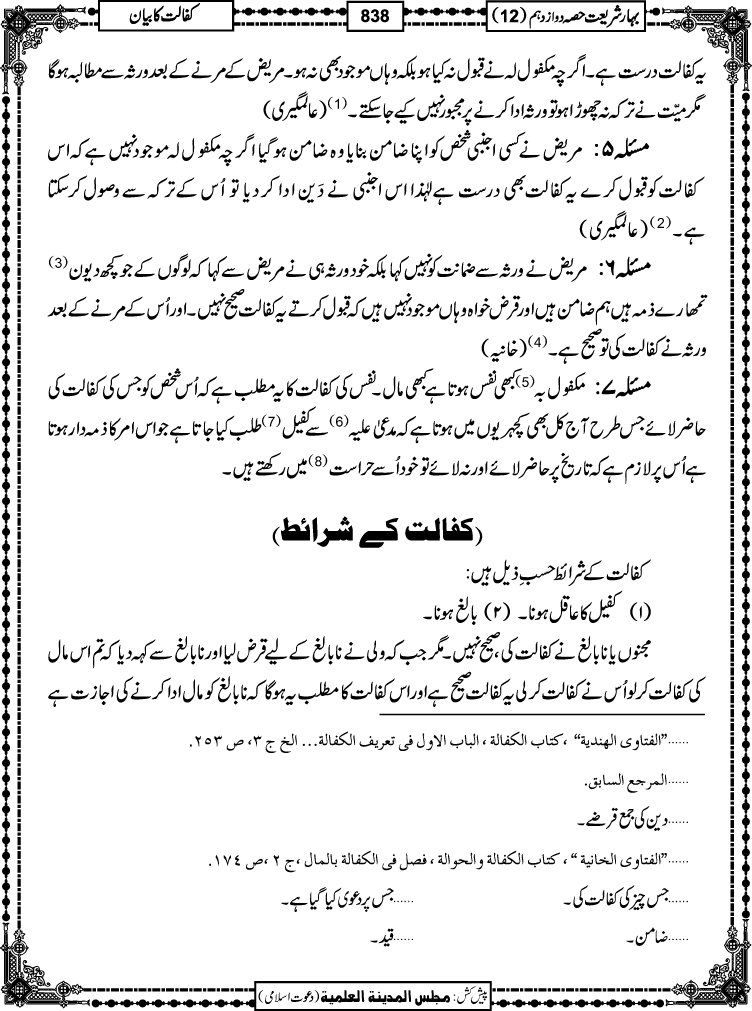 بہار شریعت حصہ دوازدہم (12)
838
کفالت کا بیان
یہ کفالت درست ہے۔ اگرچہ مکفول لہ نے قبول نہ کیا ہو بلکہ وہاں موجود بھی نہ ہو۔ مریض کے مرنے کے بعد ورثہ سے مطالبہ ہوگا
مگر میّت نے ترکہ نہ چھوڑا ہو تو ورثہ ادا کرنے پر مجبور نہیں کیے جاسکتے۔(1) (عالمگیری)
مسئلہ ۵: مریض نے کسی اجنبی شخص کو اپنا ضامن بنایا وہ ضامن ہوگیا اگرچہ مکفول لہ موجود نہیں ہے کہ اس
کفالت کو قبول کرے یہ کفالت بھی درست ہے لہٰذا اس اجنبی نے دَین ادا کردیا تو اُس کے ترکہ سے وصول کرسکتا
ہے۔(2) (عالمگیری)
مسئلہ ۶: مریض نے ورثہ سے ضمانت کو نہیں کہا بلکہ خود ورثہ ہی نے مریض سے کہا کہ لوگوں کے جو کچھ دیون(3)
تمھارے ذمہ ہیں ہم ضامن ہیں اور قرض خواہ وہاں موجود نہیں ہیں کہ قبول کرتے یہ کفالت صحیح نہیں۔ اور اُس کے مرنے کے بعد
ورثہ نے کفالت کی تو صحیح ہے۔(4) (خانیہ)
مسئلہ ۷: مکفول بہ(5) کبھی نفس ہوتا ہے کبھی مال۔ نفس کی کفالت کا یہ مطلب ہے کہ اُس شخص کو جس کی کفالت کی
حاضر لائے جس طرح آج کل بھی کچہریوں میں ہوتا ہے کہ مدعیٰ علیہ(6) سے کفیل(7) طلب کیا جاتا ہے جو اس امر کا ذمہ دار ہوتا
ہے اُس پر لازم ہے کہ تاریخ پر حاضر لائے اور نہ لائے تو خود اُسے حراست(8) میں رکھتے ہیں۔
(کفالت کے شرائط)
کفالت کے شرائط حسبِ ذیل ہیں:
(۱) کفیل کا عاقل ہونا۔ (۲) بالغ ہونا۔
مجنوں یا نابالغ نے کفالت کی، صحیح نہیں۔ مگر جب کہ ولی نے نابالغ کے لیے قرض لیا اور نابالغ سے کہہ دیا کہ تم اس مال
کی کفالت کرلو اُس نے کفالت کرلی یہ کفالت صحیح ہے اور اس کفالت کا مطلب یہ ہوگا کہ نابالغ کو مال ادا کرنے کی اجازت ہے
......"الفتاوی الهندیة"، کتاب الکفالة، الباب الاول فی تعریف الکفالة... الخ ج ۳، ص ۲۵۳.
......المرجع السابق.
......دین کی جمع قرضے۔
......"الفتاوی الخانیة"، کتاب الکفالة والحوالة، فصل فی الکفالة بالمال، ج ۲، ص ۱۷۴.
......جس چیز کی کفالت کی۔ ......جس پر دعویٰ کیا گیا ہے۔
......ضامن۔ ......قید۔
پیش کش: مجلس المدینة العلمیة (دعوت اسلامی)